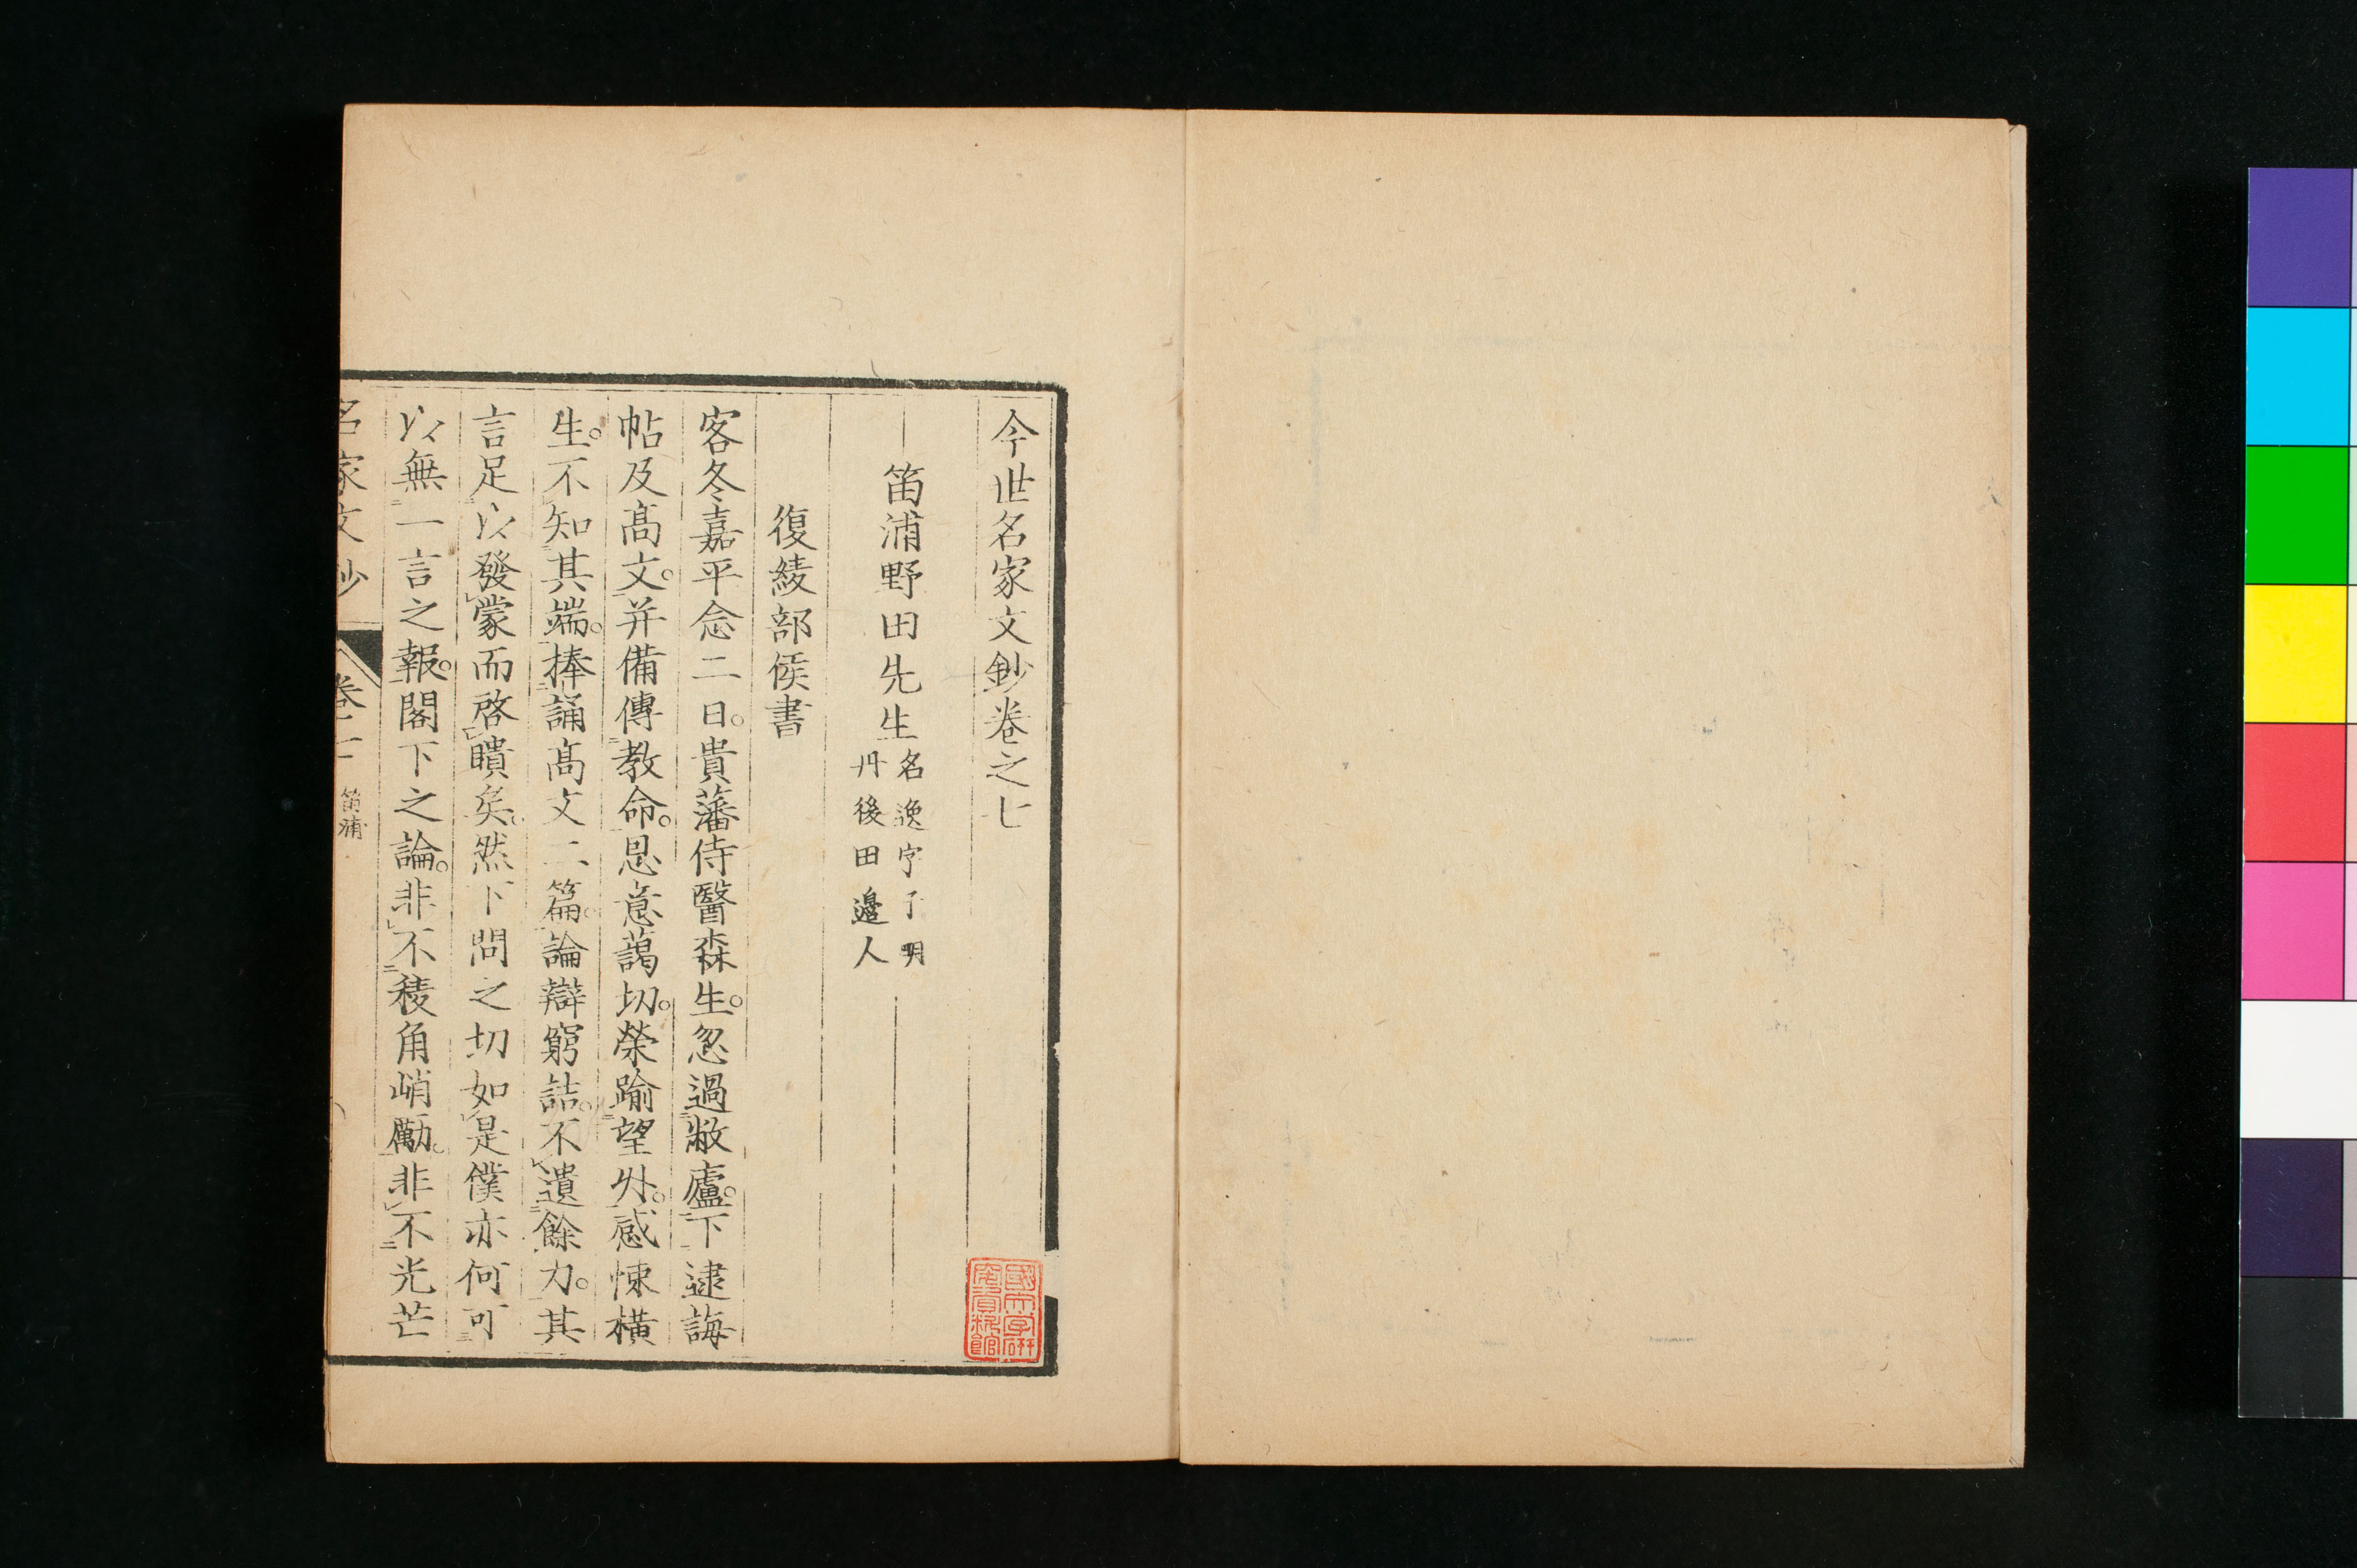 今世名家文鈔卷之七
笛浦野田先生
名逸字子明
丹後田邊人
復綾部侯書
客冬嘉平念二日。貴藩侍醫森生。忽過敝廬。下逮誨
帖及髙文。并備傳教命。恩意藹切。榮踰望外。感悚横
生。不知其端。捧誦髙文二篇。論辯窮詰。不遺餘力。其
言足以發蒙而啓瞶矣。然下問之切如是僕亦何可
以無一言之報。閣下之論。非不稜角峭勵。非不光芒
名家文鈔 卷七 笛浦
國文學研
究資料館